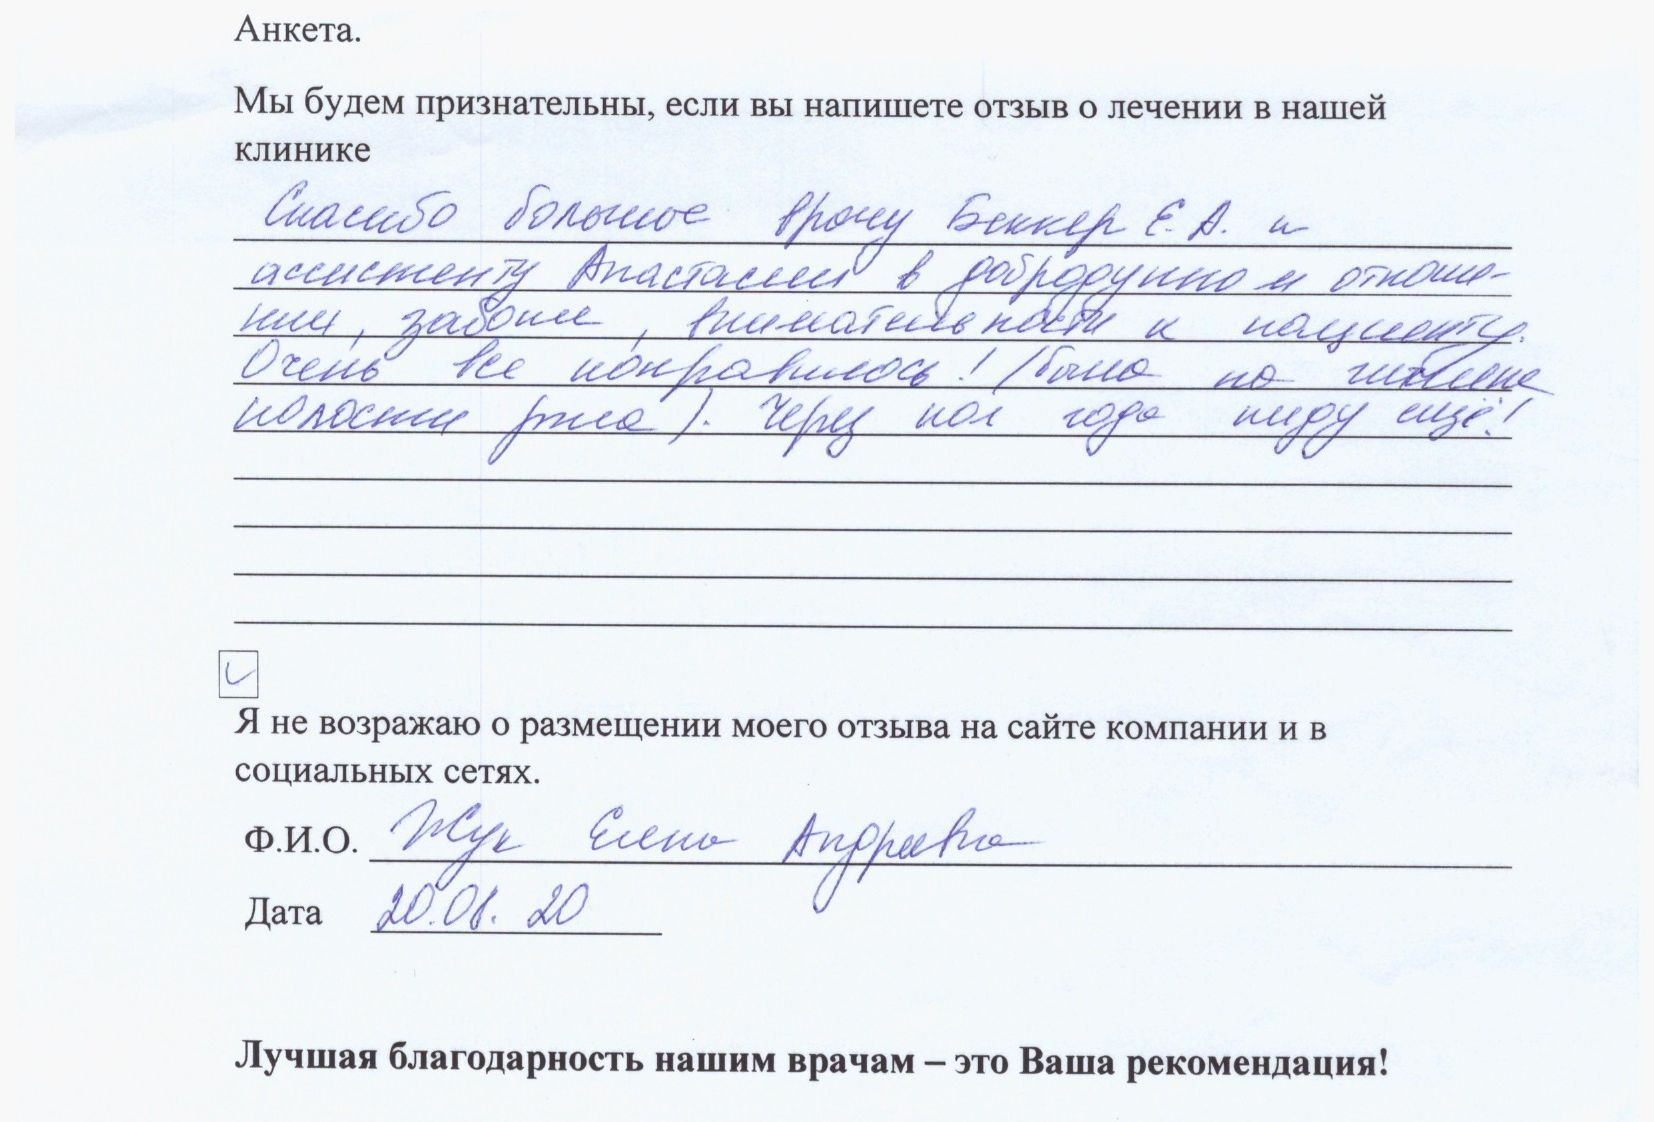 Анкета.
Мы будем признательны, если вы напишете отзыв о лечении в нашей
клинике
Спасибо большое врачу Беккер Е. А. и
ассистенту Анастасии в добродушном отноше-
нии, заботе, внимательности к пациенту.
Очень все понравилось! (была на гигиене
полости рта). Через пол года пиду ещё!
Я не возражаю о размещении моего отзыва на сайте компании и в
социальных сетях.
Ф.И.О. Жук Елена Андреевна
Дата 20.01. 20
Лучшая благодарность нашим врачам – это Ваша рекомендация!